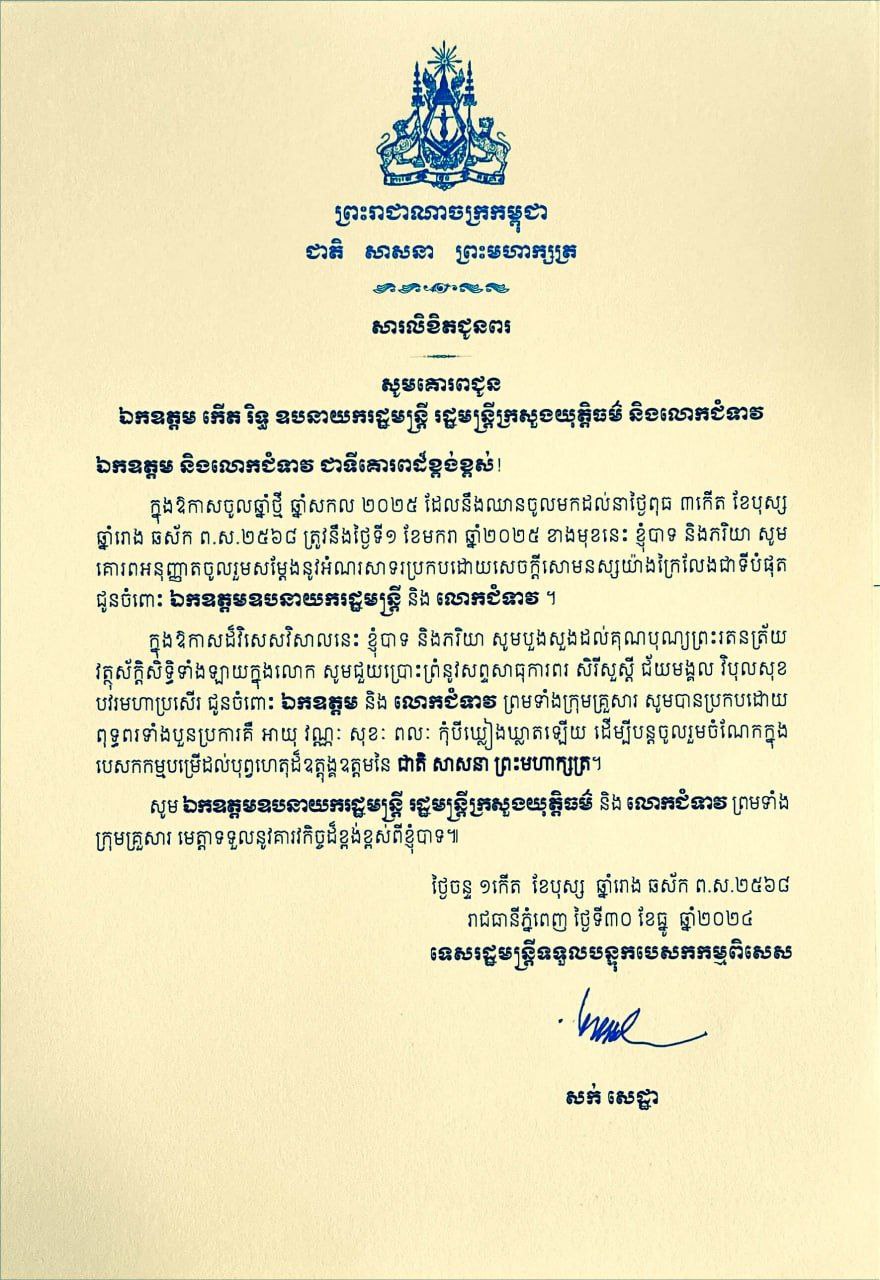 ព្រះរាជាណាចក្រកម្ពុជា
ជាតិ សាសនា ព្រះមហាក្សត្រ
សារលិខិតជូនពរ
សូមគោរពជូន
ឯកឧត្តម កើត រិទ្ធ ឧបនាយករដ្ឋមន្ត្រី រដ្ឋមន្ត្រីក្រសួងយុត្តិធម៌ និងលោកជំទាវ
ឯកឧត្តម និងលោកជំទាវ ជាទីគោរពដ៏ខ្ពង់ខ្ពស់!
ក្នុងឱកាសចូលឆ្នាំថ្មី ឆ្នាំសកល ២០២៥ ដែលនឹងឈានចូលមកដល់នាថ្ងៃពុធ ៣កើត ខែបុស្ស
ឆ្នាំរោង ឆស័ក ព.ស.២៥៦៨ ត្រូវនឹងថ្ងៃទី១ ខែមករា ឆ្នាំ២០២៥ ខាងមុខនេះ ខ្ញុំបាទ និងភរិយា សូម
គោរពអនុញ្ញាតចូលរួមសម្តែងនូវអំណរសាទរប្រកបដោយសេចក្តីសោមនស្សយ៉ាងក្រៃលែងជាទីបំផុត
ជូនចំពោះ ឯកឧត្តមឧបនាយករដ្ឋមន្ត្រី និង លោកជំទាវ ។
ក្នុងឱកាសដ៏វិសេសវិសាលនេះ ខ្ញុំបាទ និងភរិយា សូមបួងសួងដល់គុណបុណ្យព្រះរតនត្រ័យ
វត្ថុស័ក្តិសិទ្ធិទាំងឡាយក្នុងលោក សូមជួយប្រោះព្រំនូវសព្ទសាធុការពរ សិរីសួស្តី ជ័យមង្គល វិបុលសុខ
បវរមហាប្រសើរ ជូនចំពោះ ឯកឧត្តម និង លោកជំទាវ ព្រមទាំងក្រុមគ្រួសារ សូមបានប្រកបដោយ
ពុទ្ធពរទាំងបួនប្រការគឺ អាយុ វណ្ណៈ សុខៈ ពលៈ កុំបីឃ្លៀងឃ្លាតឡើយ ដើម្បីបន្តចូលរួមចំណែកក្នុង
បេសកកម្មបម្រើដល់បុព្វហេតុដ៏ឧត្តុង្គឧត្តមនៃ ជាតិ សាសនា ព្រះមហាក្សត្រ។
សូម ឯកឧត្តមឧបនាយករដ្ឋមន្ត្រី រដ្ឋមន្ត្រីក្រសួងយុត្តិធម៌ និង លោកជំទាវ ព្រមទាំង
ក្រុមគ្រួសារ មេត្តាទទួលនូវគារវកិច្ចដ៏ខ្ពង់ខ្ពស់ពីខ្ញុំបាទ៕
ថ្ងៃចន្ទ ១កើត ខែបុស្ស ឆ្នាំរោង ឆស័ក ព.ស.២៥៦៨
រាជធានីភ្នំពេញ ថ្ងៃទី៣០ ខែធ្នូ ឆ្នាំ២០២៤
ទេសរដ្ឋមន្ត្រីទទួលបន្ទុកបេសកកម្មពិសេស
សក់ សេដ្ឋា